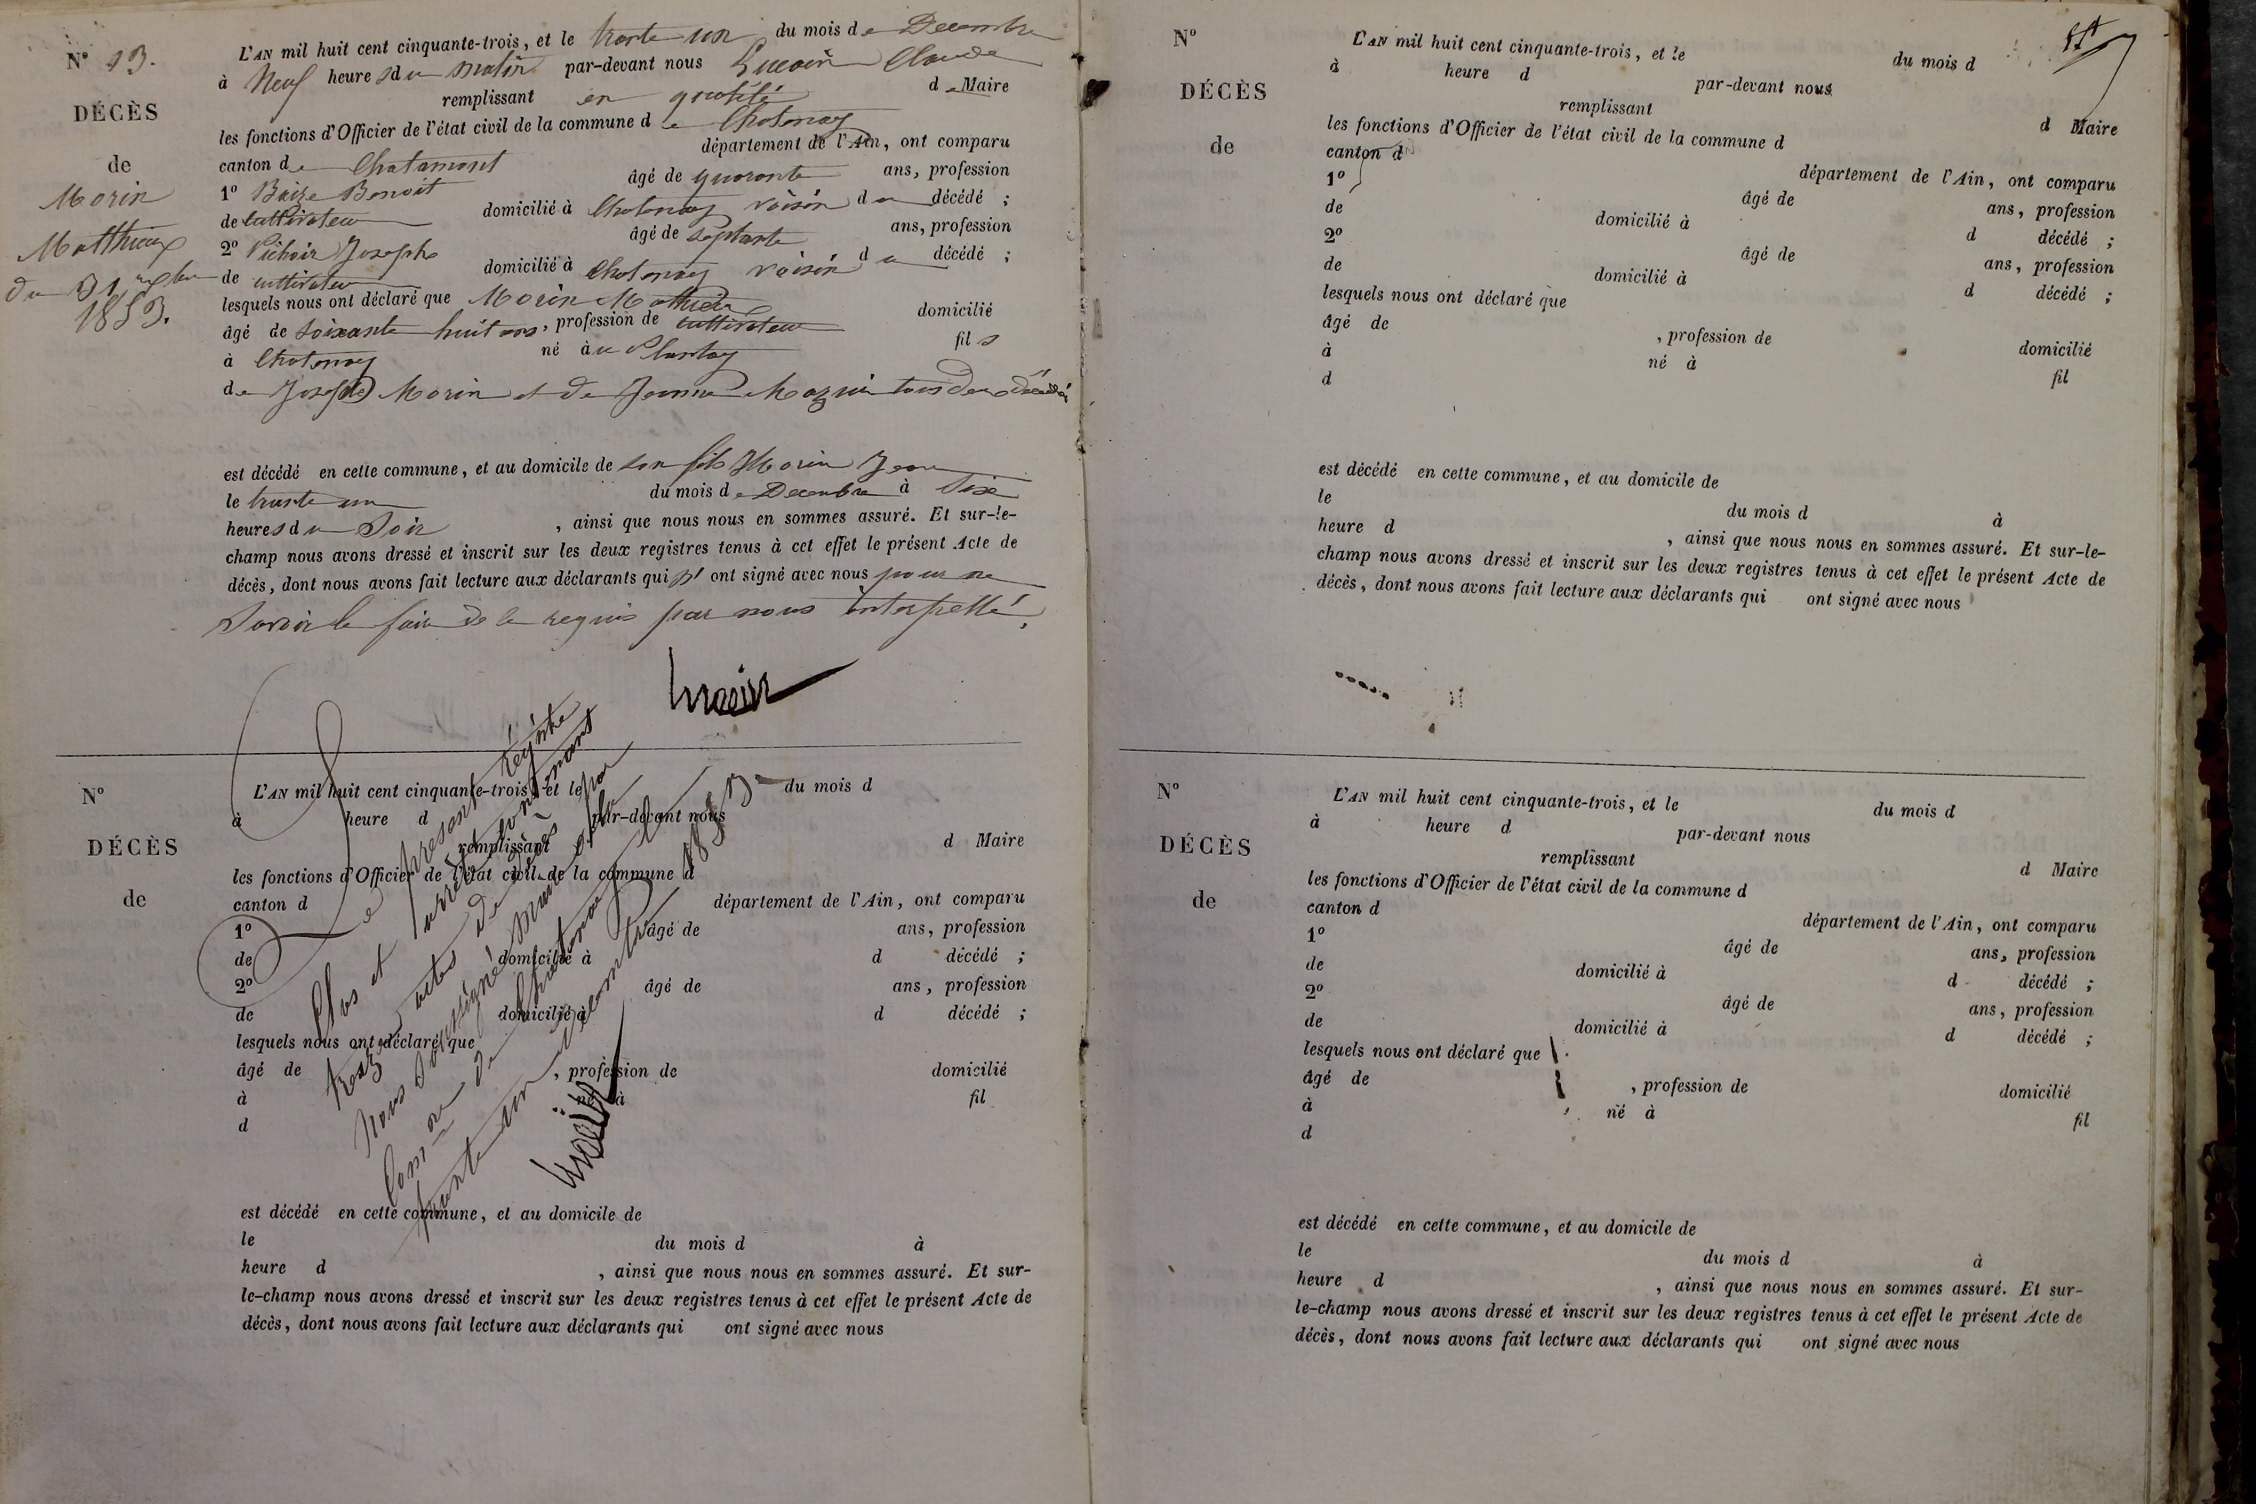 N° 13.
DÉCÈS
de
Morin
Matthieux
du 31 Xbre
1853.
L'AN mil huit cent cinquante-trois, et le trante un du mois de Decembre
à Neuf heures du matin par-devant nous Claude
remplissant en qualité de Maire
les fonctions d'Officier de l'état civil de la commune de Chatenay
canton de Chalamont département de l'Ain, ont comparu
1° Benoit âgé de quarante ans, profession
de cultivateur domicilié à Chatenay voisin du décédé ;
2° Joseph âgé de septante ans, profession
de cultivateur domicilié à Chatenay voisin du décédé ;
lesquels nous ont déclaré que Morin Mathieu
âgé de soixante huit ans, profession de cultivateur domicilié
à Chatenay né au Plantay fils
de Joseph Morin et de Jeanne tous deux décédés
est décédé en cette commune, et au domicile de son fils Morin Jean
le trante un du mois de Decembre à Six
heures du Soir, ainsi que nous nous en sommes assuré. Et sur-le-
champ nous avons dressé et inscrit sur les deux registres tenus à cet effet le présent Acte de
décès, dont nous avons fait lecture aux déclarants qui n' ont signé avec nous pour ne
Savoir le faire de le requis par nous interpellé.
N°
DÉCÈS
de
L'AN mil huit cent cinquante-trois, et le du mois d
à heure d par-devant nous
remplissant d Maire
les fonctions d'Officier de l'état civil de la commune d
canton d département de l'Ain, ont comparu
1° âgé de ans, profession
de domicilié à d décédé ;
2° âgé de ans, profession
de domicilié à d décédé ;
lesquels nous ont déclaré que
âgé de , profession de domicilié
à né à fil
d
est décédé en cette commune, et au domicile de
le du mois d à
heure d , ainsi que nous nous en sommes assuré. Et sur-
le-champ nous avons dressé et inscrit sur les deux registres tenus à cet effet le présent Acte de
décès, dont nous avons fait lecture aux déclarants qui ont signé avec nous
Le présent régistre
Clos et arrêté contenant
treize actes de décès par
Nous Soussigné Maire de la
Comne de Chatenay le
trante un Décembre 1853
N°
DÉCÈS
de
L'AN mil huit cent cinquante-trois, et le du mois d
à heure d par-devant nous
remplissant d Maire
les fonctions d'Officier de l'état civil de la commune d
canton d département de l'Ain, ont comparu
1° âgé de ans, profession
de domicilié à d décédé ;
2° âgé de ans, profession
de domicilié à d décédé ;
lesquels nous ont déclaré que
âgé de , profession de domicilié
à né à fil
d
est décédé en cette commune, et au domicile de
le du mois d à
heure d , ainsi que nous nous en sommes assuré. Et sur-le-
champ nous avons dressé et inscrit sur les deux registres tenus à cet effet le présent Acte de
décès, dont nous avons fait lecture aux déclarants qui ont signé avec nous
N°
DÉCÈS
de
L'AN mil huit cent cinquante-trois, et le du mois d
à heure d par-devant nous
remplissant d Maire
les fonctions d'Officier de l'état civil de la commune d
canton d département de l'Ain, ont comparu
1° âgé de ans, profession
de domicilié à d décédé ;
2° âgé de ans, profession
de domicilié à d décédé ;
lesquels nous ont déclaré que
âgé de , profession de domicilié
à né à fil
d
est décédé en cette commune, et au domicile de
le du mois d à
heure d , ainsi que nous nous en sommes assuré. Et sur-
le-champ nous avons dressé et inscrit sur les deux registres tenus à cet effet le présent Acte de
décès, dont nous avons fait lecture aux déclarants qui ont signé avec nous